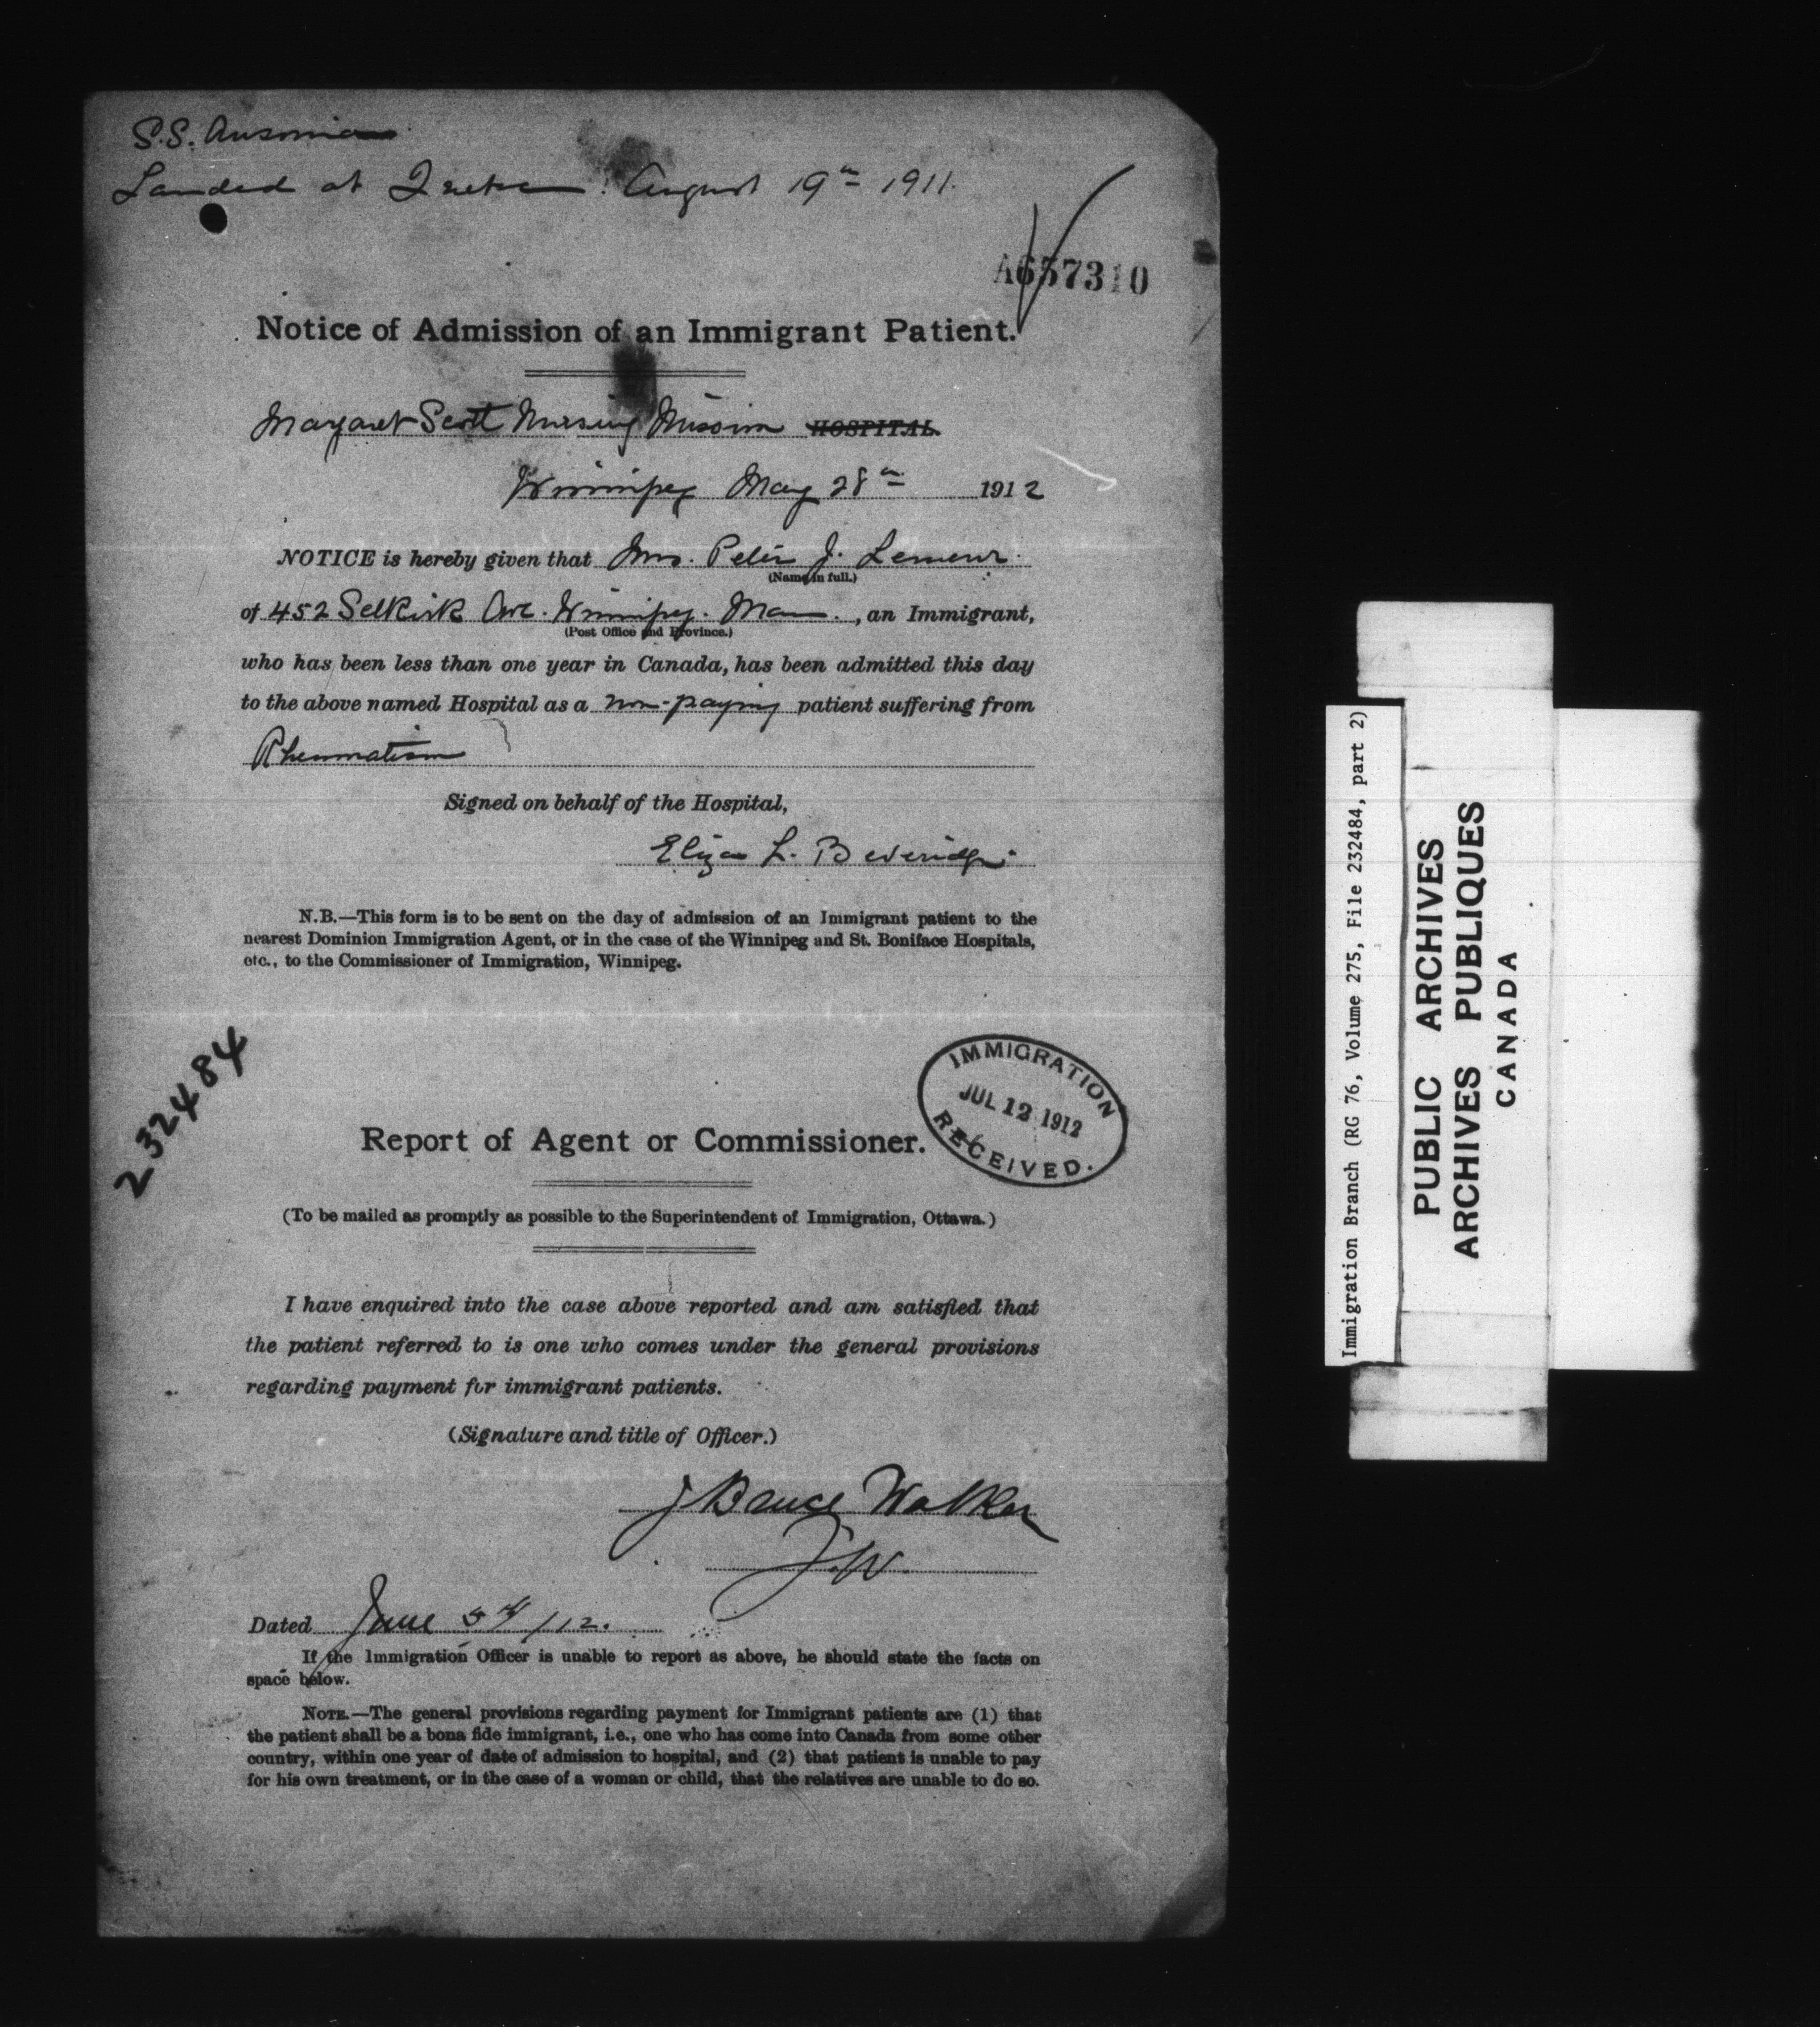 S.S. Ausonia
Landed at Quebec. August 19th 1911.
A657310
Notice of Admission of an Immigrant Patient.
Margaret Scott Nursing Mission HOSPITAL
Winnipeg May 28th 1912
NOTICE is hereby given that Mrs. Peter J. Lemeur.
(Name in full.)
of 452 Selkirk Ave. Winnipeg. Man., an Immigrant,
(Post Office and Province.)
who has been less than one year in Canada, has been admitted this day
to the above named Hospital as a non-paying patient suffering from
Rheumatism
Signed on behalf of the Hospital,
Eliza L. Beveridge.
N.B.—This form is to be sent on the day of admission of an Immigrant patient to the
nearest Dominion Immigration Agent, or in the case of the Winnipeg and St. Boniface Hospitals,
etc., to the Commissioner of Immigration, Winnipeg.
232484
IMMIGRATION
JUL 12 1912
RECEIVED.
Report of Agent or Commissioner.
(To be mailed as promptly as possible to the Superintendent of Immigration, Ottawa.)
I have enquired into the case above reported and am satisfied that
the patient referred to is one who comes under the general provisions
regarding payment for immigrant patients.
(Signature and title of Officer.)
J Bruce Walker
J.W.
Dated June 5th/12.
If the Immigration Officer is unable to report as above, he should state the facts on
space below.
NOTE.—The general provisions regarding payment for Immigrant patients are (1) that
the patient shall be a bona fide immigrant, i.e., one who has come into Canada from some other
country, within one year of date of admission to hospital, and (2) that patient is unable to pay
for his own treatment, or in the case of a woman or child, that the relatives are unable to do so.
Immigration Branch (RG 76, Volume 275, File 232484, part 2)
PUBLIC ARCHIVES
ARCHIVES PUBLIQUES
CANADA